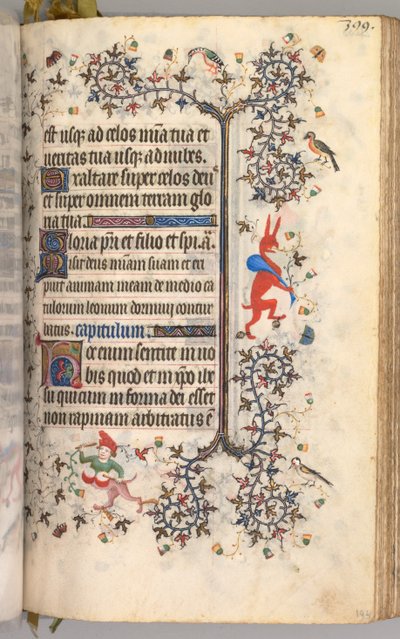 399.
est usq; ad celos mĩa tua et
veritas tua usq; ad nubes.
Exaltare super celos deus
et super omnem terram glo
ria tua.
Gloria pr̃i et filio et sp̃i. ã.
Misit deus mĩam suam et eri
puit animam meam de medio ca
tulorum leonum dormivi contur
batus. capitulum.
Hoc enim sentite in uo
bis quod et in xp̃o ihe
su qui cum in forma dei esset
non rapinam arbitratus ẽ
194